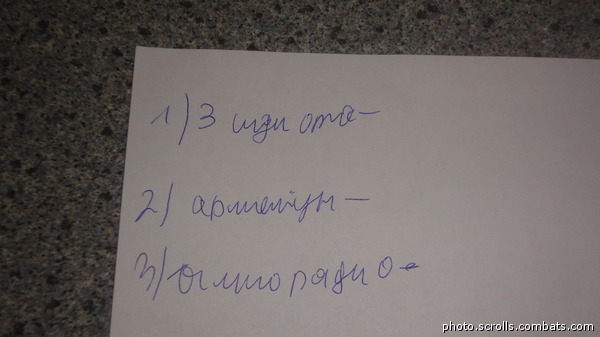 1) 3 идиота-
2) армейцы -
3) олигорадио -
photo.scrolls.combats.com